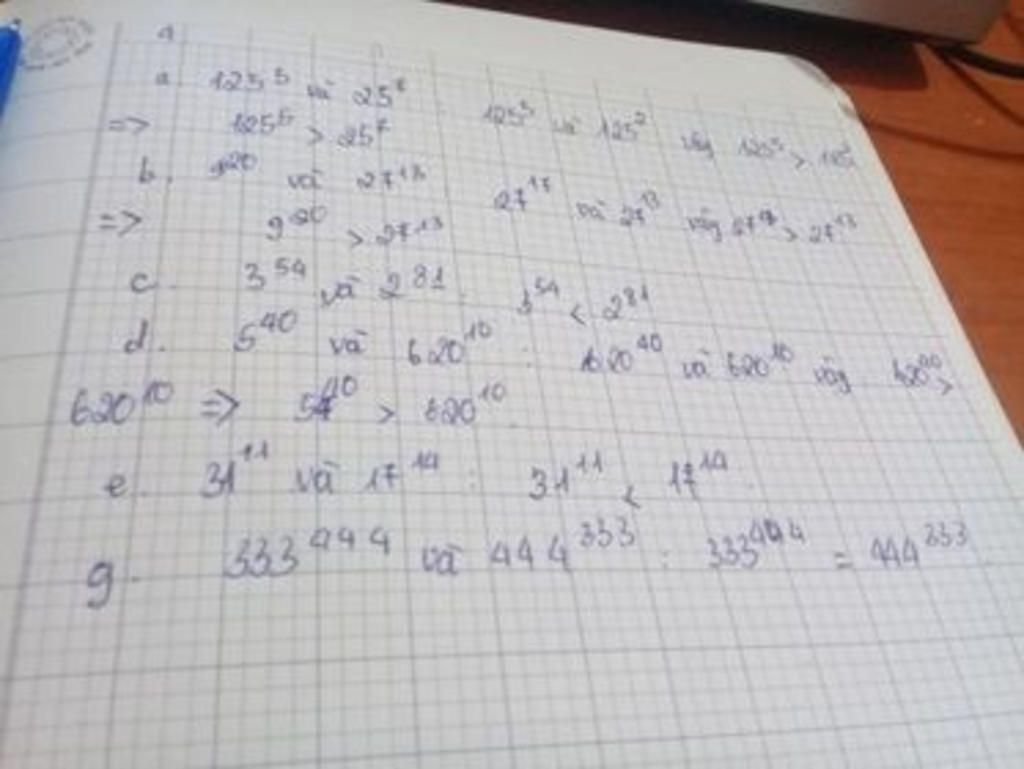 a
a. 125⁵ và 25⁷ : 125⁵ và 125² vậy 125⁵ >
=> 125⁵ > 25⁷
b. 9²⁰ và 27¹³ 27¹⁷ và 27¹³ vậy 27¹⁷ > 27¹³
=> 9²⁰ > 27¹³
c. 3⁵⁴ và 2⁸¹ : 3⁵⁴ < 2⁸¹
d. 5⁴⁰ và 620¹⁰ : 620⁴⁰ và 620¹⁰ vậy 620⁴⁰ >
620¹⁰ => 5⁴⁰ > 620¹⁰
e. 31¹¹ và 17¹⁴ : 31¹¹ < 17¹⁴.
g. 333⁴⁴⁴ và 444³³³ : 333⁴⁴⁴ = 444³³³.